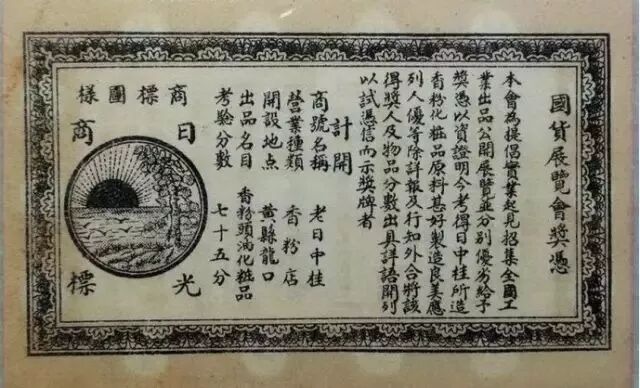 國貨展覽會獎憑
本會為提倡實業起見招集全國工
業出品公開展覽並分別優劣給予
獎憑以資證明今考得日中桂所造
香粉化粧品原料甚好製造良美應
列入優等除詳報及行知外合將該
得獎人及物品分數出具評語開列
以試憑信而示獎牌者
計開
商號名稱 老日中桂
營業種類 香粉店
開設地点 黃縣龍口
出品名目 香粉頭油化粧品
考驗分數 七十五分
商標圖樣
日光
商標